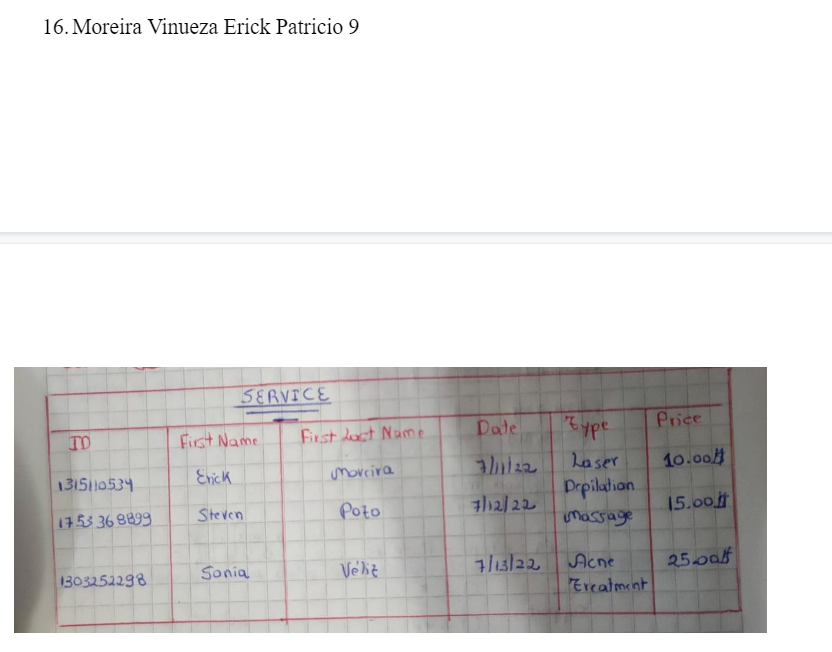 16. Moreira Vinueza Erick Patricio 9
SERVICE
ID First Name First Last Name Date Type Price
1315110534 Erick Moreira 7/11/22 Laser Depilation 10.00$
1753368899 Steven Pozo 7/12/22 Massage 15.00$
1303252298 Sonia Véliz 7/13/22 Acne Treatment 25.00$